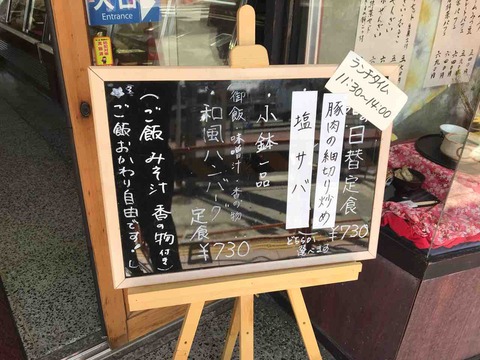 入口
Entrance
ランチタイム
11:30~14:00
日替定食
豚肉の細切り炒め
¥730
塩サバ
どちらか
選べます
小鉢一品
御飯・味噌汁・香の物
和風ハンバーグ
定食
¥730
(ご飯 みそ汁 香の物 付き)
ご飯おかわり自由です!